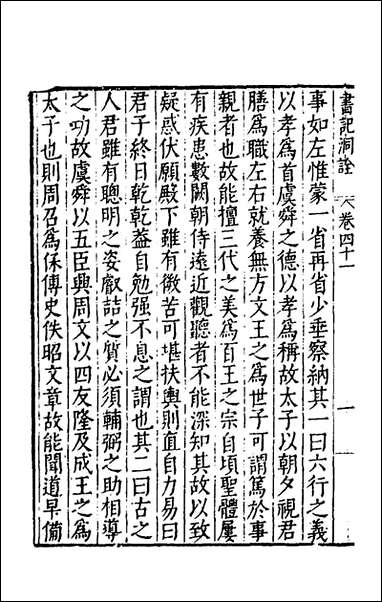 書記洞詮 卷四十一 一
事如左惟蒙一省再省少垂察納其一曰六行之義
以孝爲首虞舜之德以孝爲稱故太子以朝夕視君
膳爲職左右就養無方文王之爲世子可謂篤於事
親者也故能擅三代之美爲百王之宗自頃聖體屢
有疾患數闕朝侍遠近觀聽者不能深知其故以致
疑惑伏願殿下雖有微苦可堪扶輿則宜自力易曰
君子終日乾乾葢自勉强不息之謂也其二曰古之
人君雖有聰明之姿叡喆之質必須輔弼之助相導
之功故虞舜以五臣興周文以四友隆及成王之爲
太子也則周召爲保傅史佚昭文章故能聞道早備